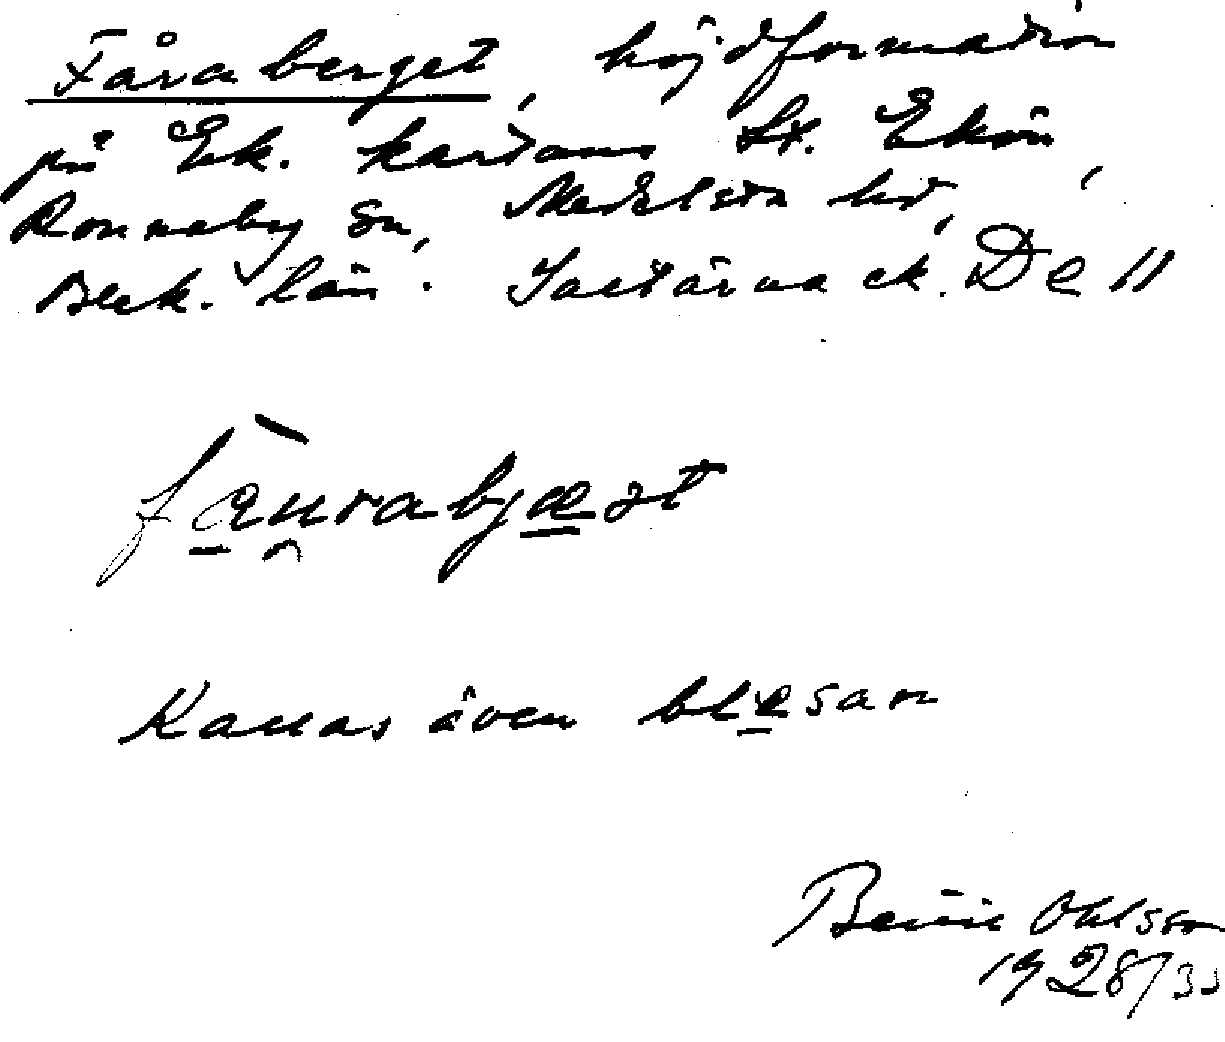 Fåraberget, höjdformation
på Ek. kartans St. Ekön,
Ronneby sn, Medelsta hd,
Blek. län. Saltärna ek. De 11
fàu̯rabjæət
Kallas även blesan
Bengt Ohlsson
1928/33